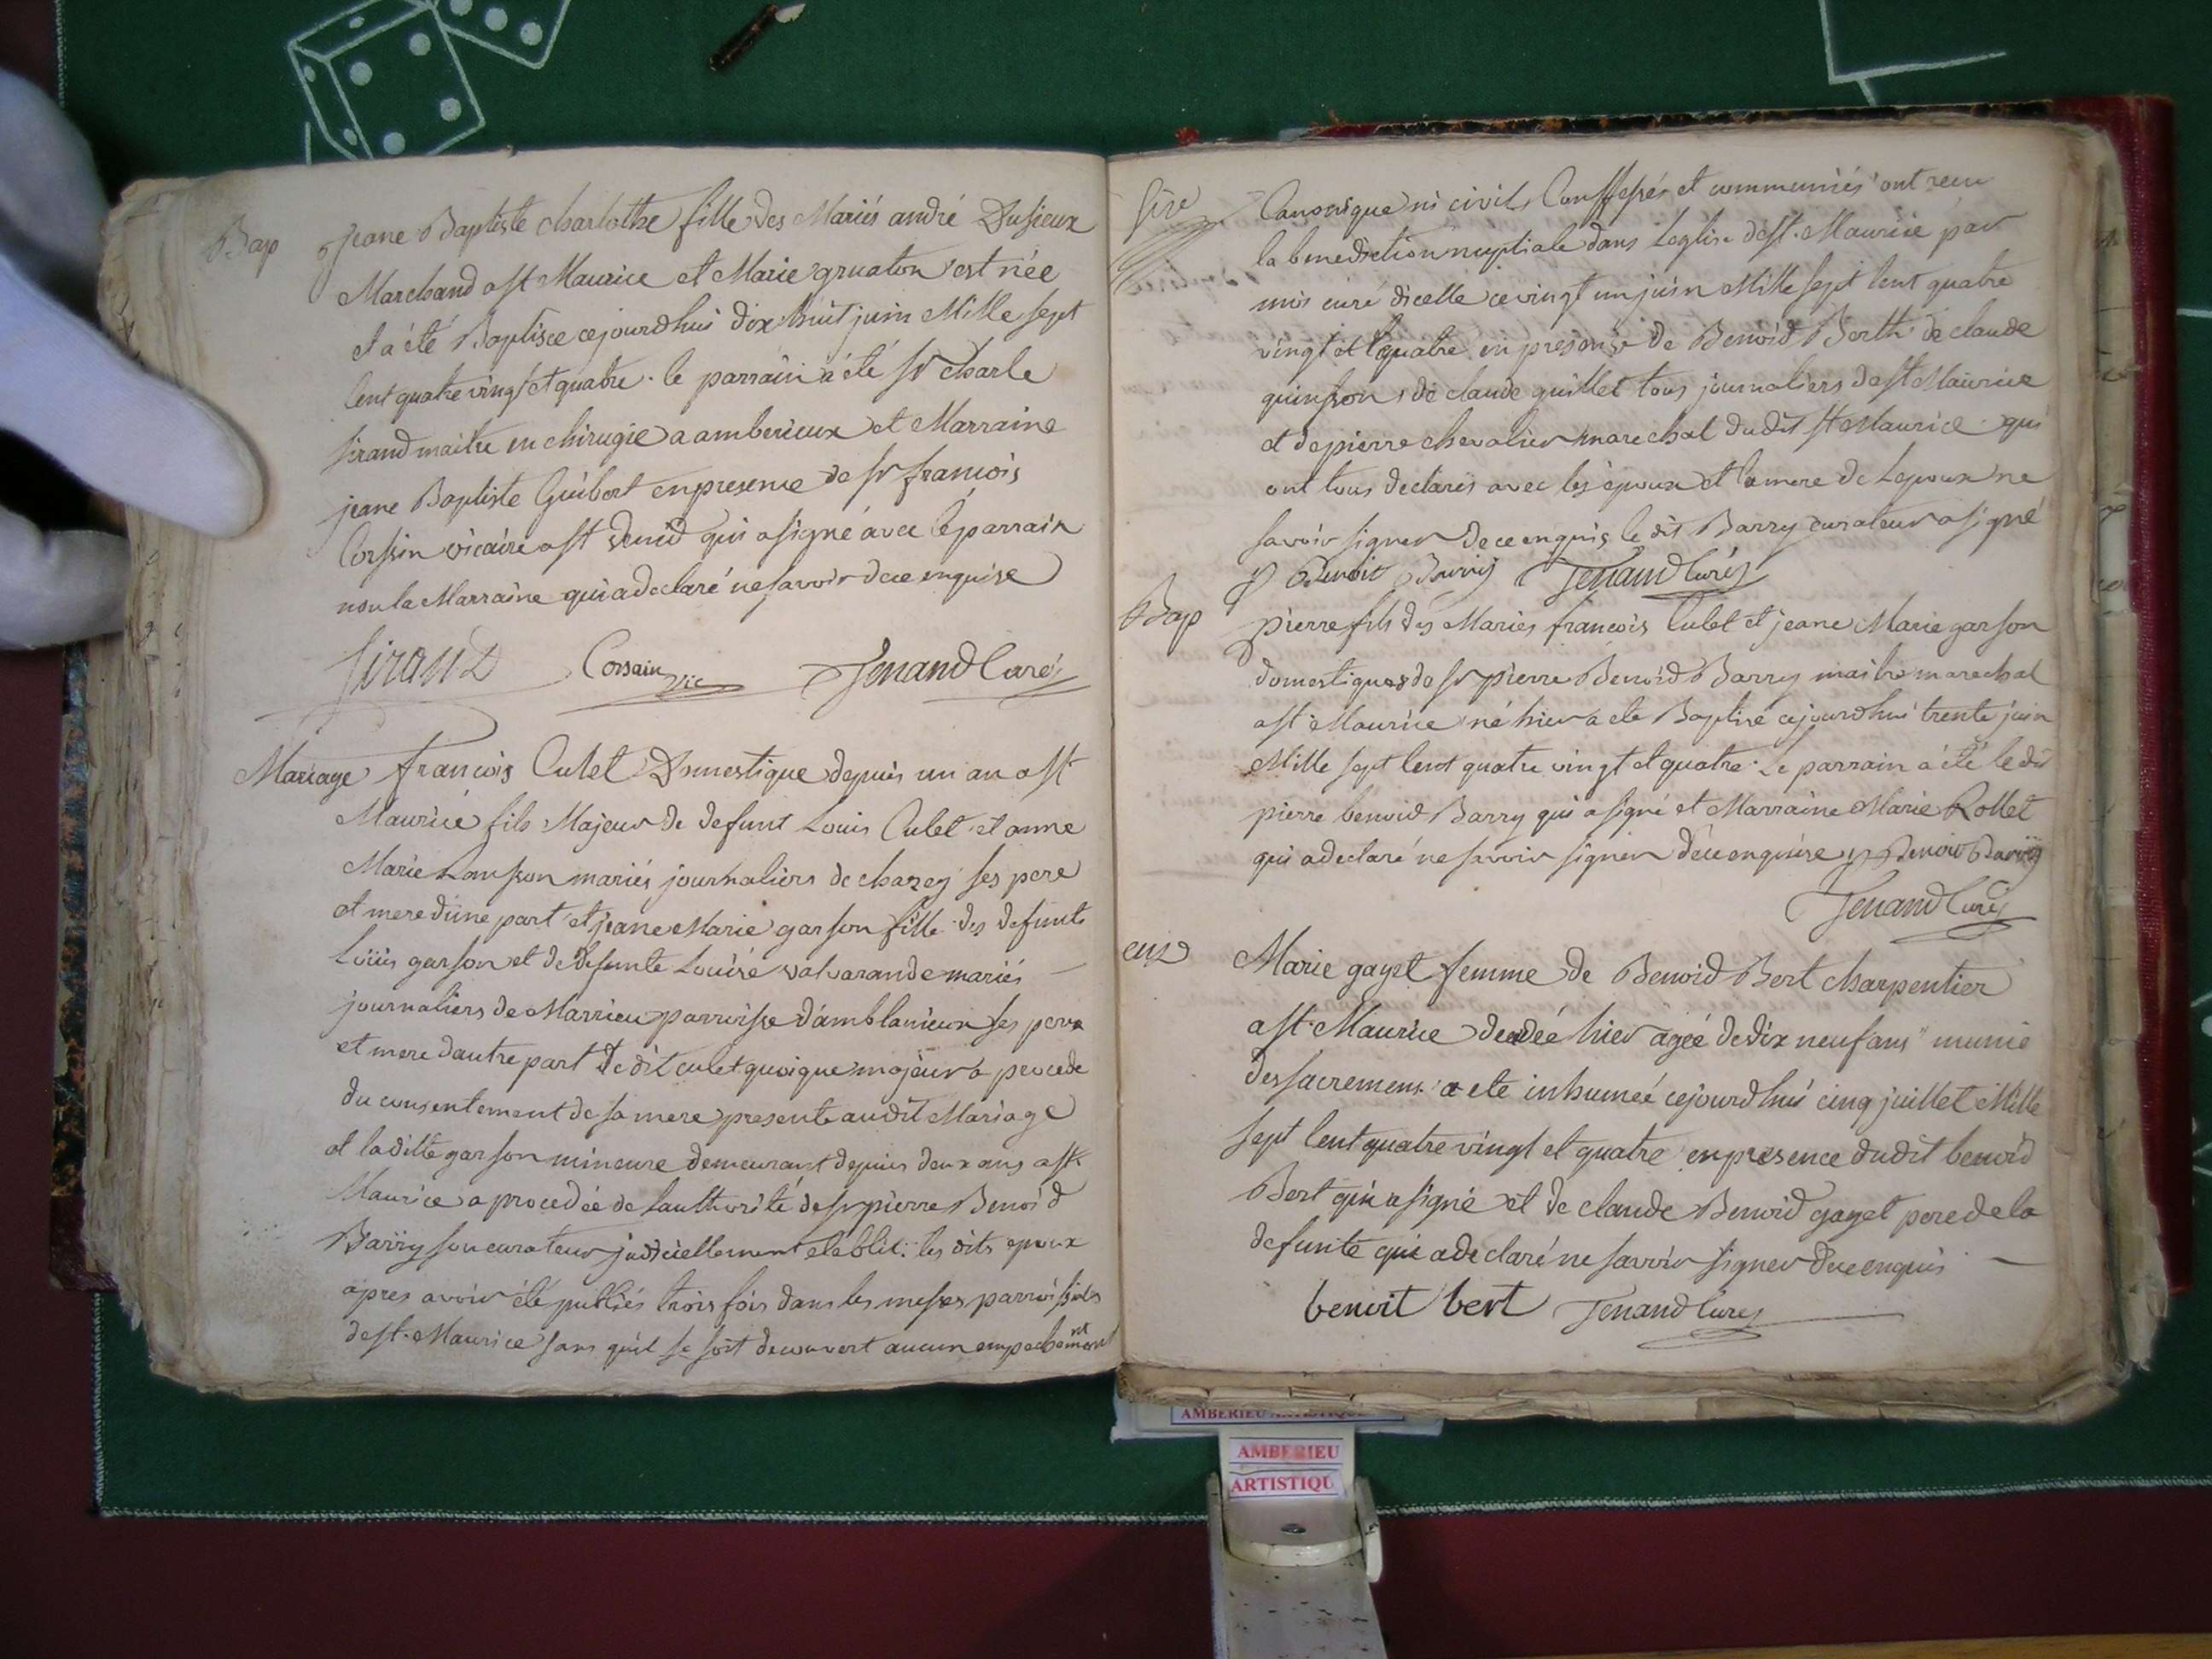 Bap Jeane Baptiste charlotte fille des Mariés andré Dusieux
Marchand a st Maurice et Marie gruaton est née
et a été Baptisée cejourdhui dix huit juin Mille sept
Cent quatre vingt et quatre. le parrain a été sr charle
sirand maitre en chirugie a amberieux et Marraine
jeane Baptiste Guibert en presence de sr francois
Corssin vicaire a st denid qui a signé avec le parrain
non la Marraine qui a declaré ne savoir de ce enquise
Sirand Corsain vic Tenand Curé
Mariage francois Culet Domestique depuis un an a st
Maurice fils Majeur de defunt Louis Culet et anne
Marie Lanfson mariés journaliers de chazey ses pere
et mere d'une part et jeane Marie garson fille des defunts
Loüis garson et de defunte Louise valvarande mariés
journaliers de Marrieu parroisse d'amblanieux ses pere
et mere dautre part le dit culet quoique majeur a procede
du consentement de sa mere presente audit Mariage
et la ditte garson mineure demeurant depuis deux ans a st
Maurice a procedée de lauthorité de sr pierre Benoid
Barry son curateur judiciellement etablit: les dits epoux
apres avoir été publiés trois fois dans les messes parroissiales
de st. Maurice sans quil se soit decouvert aucun empechement
Canonique ni civil, Conffessés et communiés ont recu
la benediction nuptiale dans Leglise de st. Maurice par
mois curé dicelle ce vingt un juin Mille sept Cent quatre
vingt et quatre en presence de Benoid Berth de claude
quinson, de claude guillet tous journaliers de st Maurice
et de pierre chevalier marechal dudit st Maurice qui
ont tous declarés avec les epoux et la mere de Lepoux ne
savoir signer de ce enquis le dit Barry curateur a signé
P Benoit Barry Tenand Curé
Bap pierre fils des Mariés francois Culet et jeane Marie garson
domestiques de sr pierre Benoid Barry maitre marechal
a st. Maurice né hier a ete Baptisé cejourdhui trente juin
Mille sept Cent quatre vingt et quatre. Le parrain a été le dit
pierre benoid Barry qui a signé et Marraine Marie Rollet
qui a declaré ne savoir signer de ce enquise P Benoit Barry
Tenand Curé
Marie gayet femme de Benoid Bert charpentier
a st. Maurice decedée hier agée de dix neuf ans munie
des sacremens a ete inhumée cejourdhui cinq juillet Mille
sept Cent quatre vingt et quatre en presence dudit benoid
Bert qui a signé et de claude Benoid gayet pere de la
defunte qui a declaré ne savoir signer de ce enquis
benoit bert Tenand Curé
AMBERIEU ARTISTIQUE
AMBERIEU
ARTISTIQU